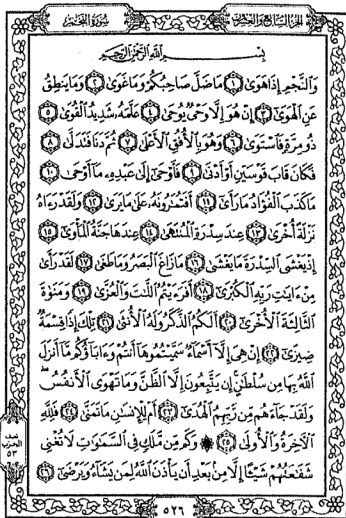 الجزء السابع والعشرون
سورة النجم
بِسْمِ اللَّهِ الرَّحْمَٰنِ الرَّحِيمِ
وَالنَّجْمِ إِذَا هَوَىٰ ١ مَا ضَلَّ صَاحِبُكُمْ وَمَا غَوَىٰ ٢ وَمَا يَنطِقُ
عَنِ الْهَوَىٰ ٣ إِنْ هُوَ إِلَّا وَحْيٌ يُوحَىٰ ٤ عَلَّمَهُ شَدِيدُ الْقُوَىٰ ٥
ذُو مِرَّةٍ فَاسْتَوَىٰ ٦ وَهُوَ بِالْأُفُقِ الْأَعْلَىٰ ٧ ثُمَّ دَنَا فَتَدَلَّىٰ ٨
فَكَانَ قَابَ قَوْسَيْنِ أَوْ أَدْنَىٰ ٩ فَأَوْحَىٰ إِلَىٰ عَبْدِهِ مَا أَوْحَىٰ ١٠
مَا كَذَبَ الْفُؤَادُ مَا رَأَىٰ ١١ أَفَتُمَارُونَهُ عَلَىٰ مَا يَرَىٰ ١٢ وَلَقَدْ رَءَاهُ
نَزْلَةً أُخْرَىٰ ١٣ عِندَ سِدْرَةِ الْمُنتَهَىٰ ١٤ عِندَهَا جَنَّةُ الْمَأْوَىٰ ١٥
إِذْ يَغْشَى السِّدْرَةَ مَا يَغْشَىٰ ١٦ مَا زَاغَ الْبَصَرُ وَمَا طَغَىٰ ١٧ لَقَدْ رَأَىٰ
مِنْ ءَايَاتِ رَبِّهِ الْكُبْرَىٰ ١٨ أَفَرَءَيْتُمُ اللَّاتَ وَالْعُزَّىٰ ١٩ وَمَنَوٰةَ
الثَّالِثَةَ الْأُخْرَىٰ ٢٠ أَلَكُمُ الذَّكَرُ وَلَهُ الْأُنثَىٰ ٢١ تِلْكَ إِذًا قِسْمَةٌ
ضِيزَىٰ ٢٢ إِنْ هِيَ إِلَّا أَسْمَاءٌ سَمَّيْتُمُوهَا أَنتُمْ وَءَابَاؤُكُم مَّا أَنزَلَ
اللَّهُ بِهَا مِن سُلْطَانٍ إِن يَتَّبِعُونَ إِلَّا الظَّنَّ وَمَا تَهْوَى الْأَنفُسُ
وَلَقَدْ جَاءَهُم مِّن رَّبِّهِمُ الْهُدَىٰ ٢٣ أَمْ لِلْإِنسَانِ مَا تَمَنَّىٰ ٢٤ فَلِلَّهِ
الْآخِرَةُ وَالْأُولَىٰ ٢٥ ۞ وَكَم مِّن مَّلَكٍ فِي السَّمَاوَاتِ لَا تُغْنِي
شَفَاعَتُهُمْ شَيْئًا إِلَّا مِن بَعْدِ أَن يَأْذَنَ اللَّهُ لِمَن يَشَاءُ وَيَرْضَىٰ ٢٦
نصف
الحزب
٥٣
٥٢٦